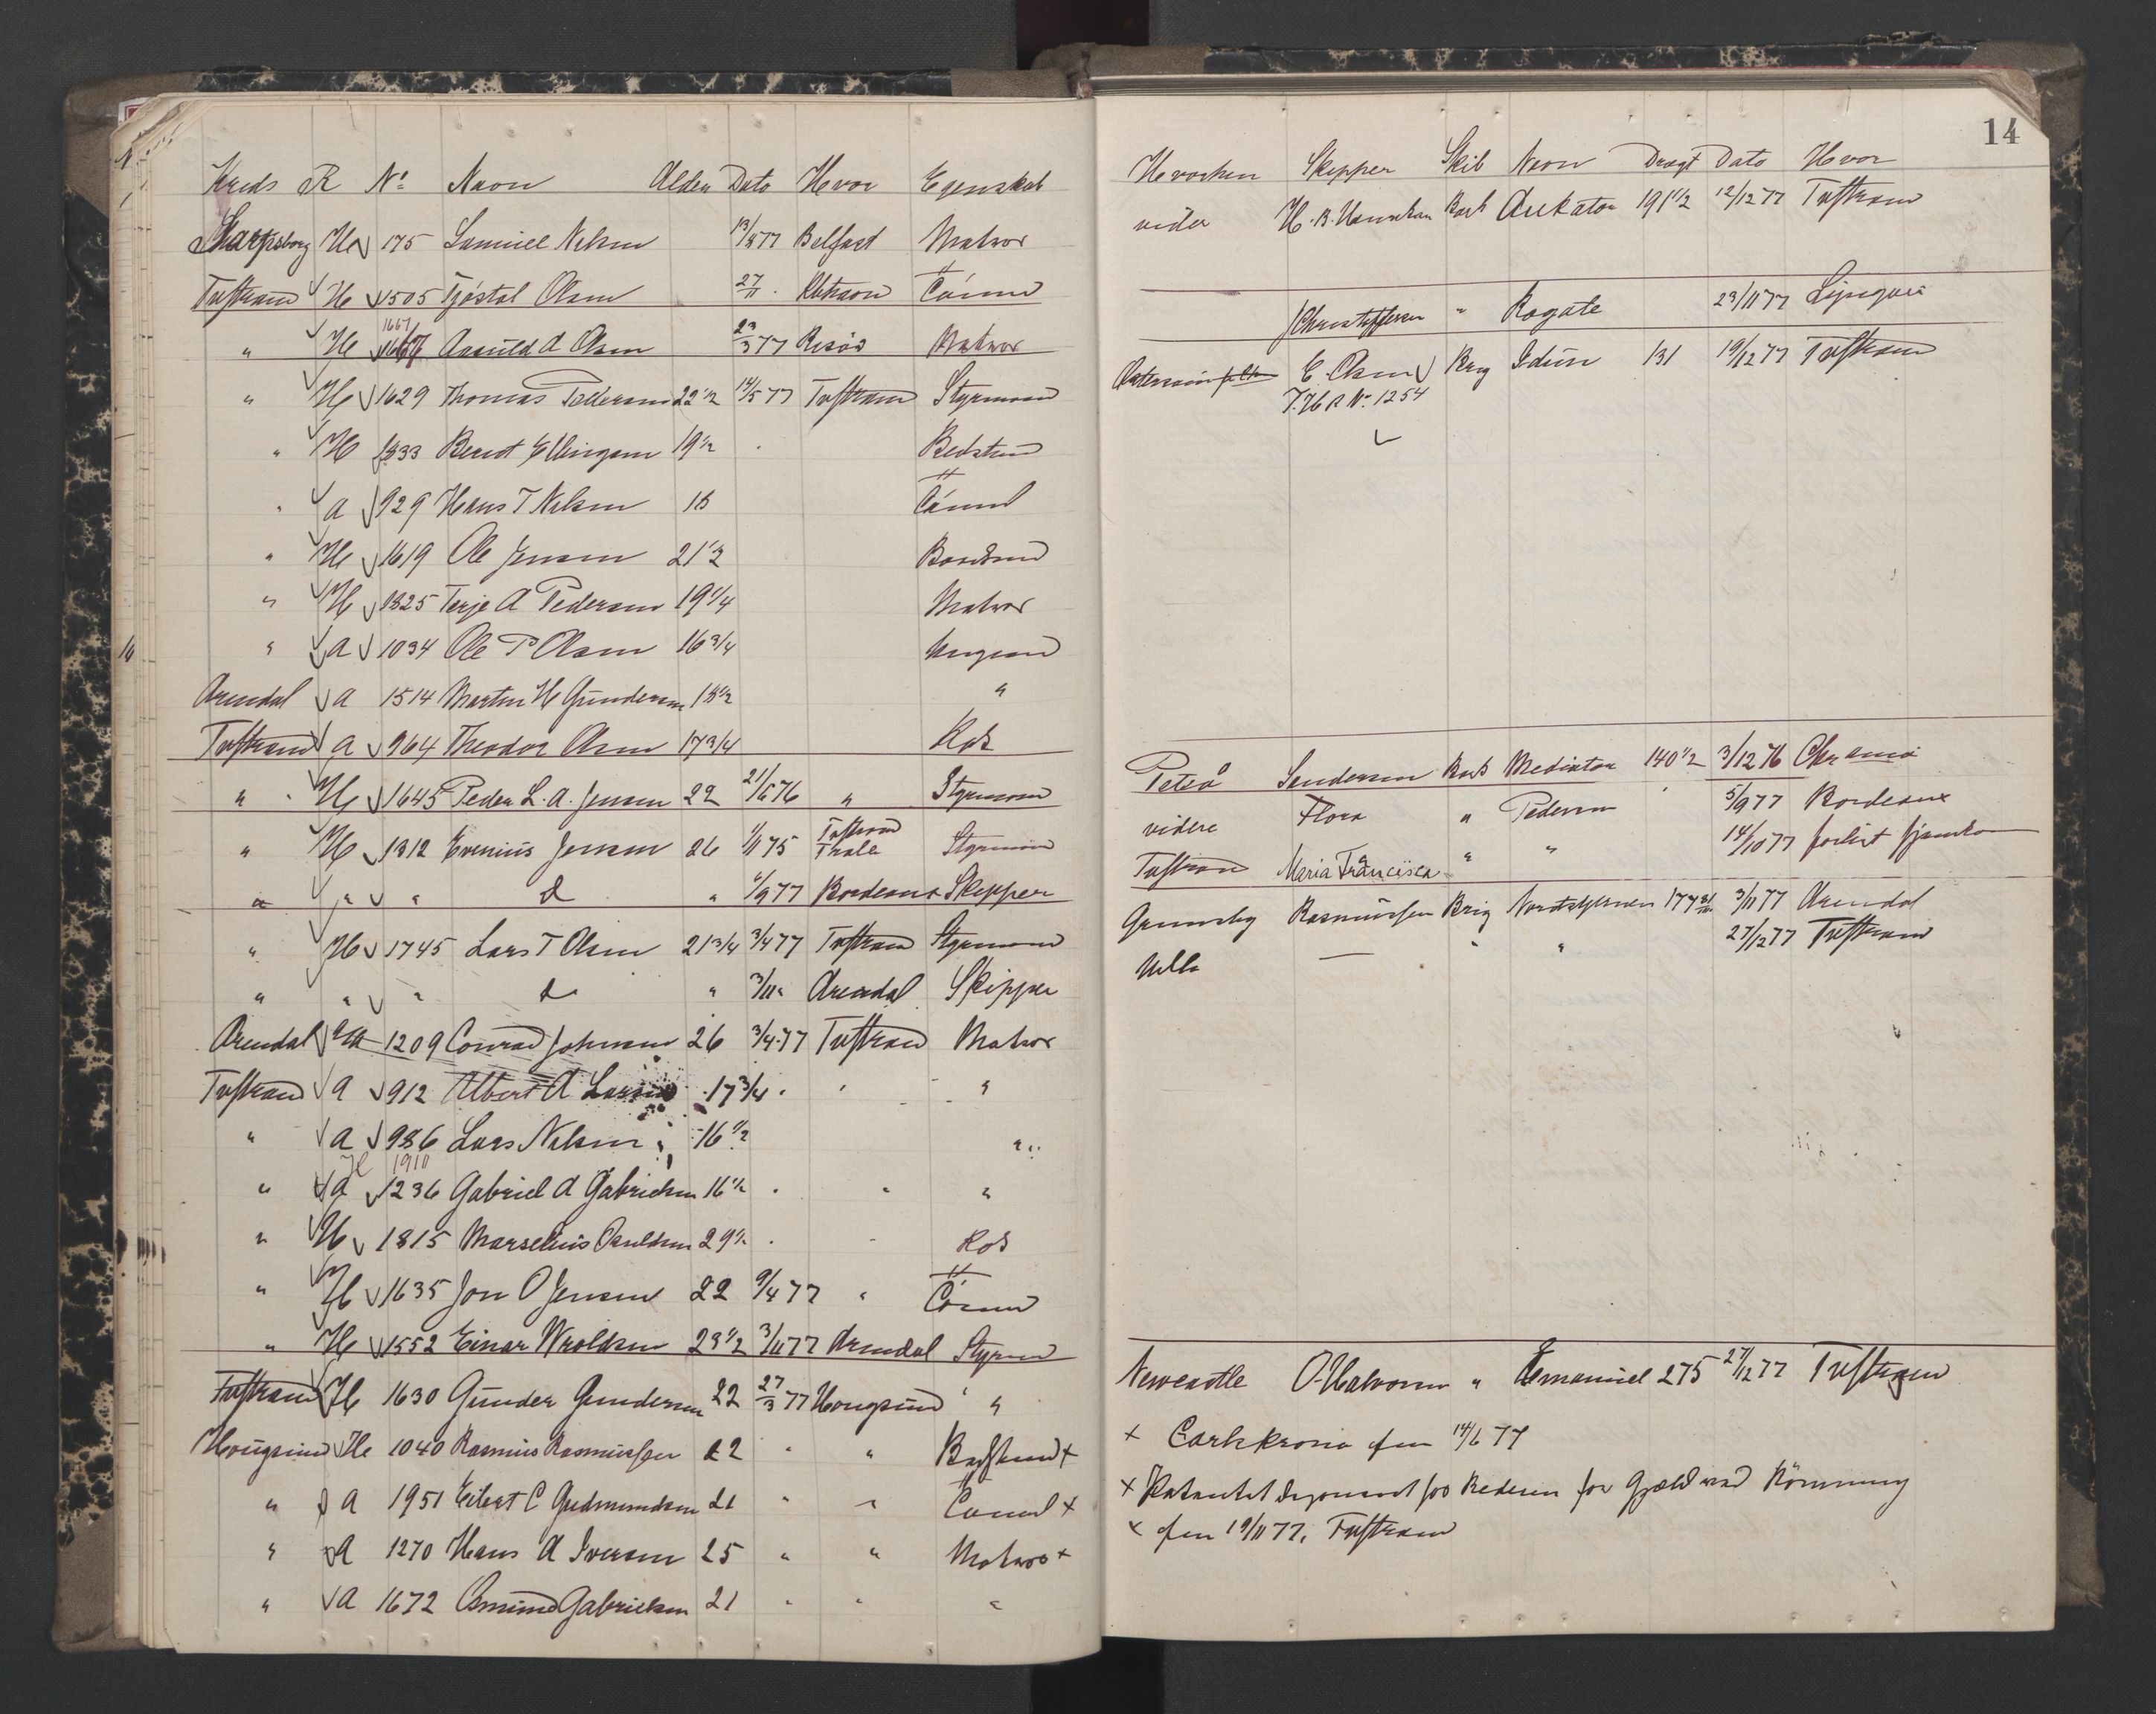 Kreds R No Navn Alder Dato Hvor Egenskab
Sarpsborg H 175 Samuel Nilsen 13/8 77 Belfast Matros
Tvestrand H 505 Tjöstol Olsen 27/11 Tömmd
" H 1667 Olsen 23/3 77 Risör Matros
" H 1629 Thomas Tellefsen 22 1/2 14/5 77 Tvestrand Styrmand
" H 1833 Berent Ellingsen 19 1/2 Bedstmd
" A 929 Hans T Nilsen 18 Tömmd
" H 1619 Ole Jensen 21 1/2 Baadsmd
" H 1825 Terje A Pedersen 19 1/4 Matros
" A 1034 Ole P Olsen 16 3/4 Ungmd
Arendal A 1514 Martin H Gundersen 18 1/2 "
Tvestrand A 964 Theodor Olsen 17 3/4 Kok
" H 1645 Peder L. A. Jensen 22 21/6 76 " Styrmand
" H 1312 Evenius Jensen 26 1/11 75 Tvestrand Styrmand
" " " d " 1/9 77 Bordeaux Skipper
" H 1745 Lars T Olsen 21 3/4 3/4 77 Tvestrand Styrmand
" " " d " 3/11 " Arendal Skipper
Arendal A 1209 Conrad Johnsen 26 3/4 77 Tvestrand Matros
Tvestrand A 912 Albert A Larsen 17 3/4 " "
" A 986 Lars Nilsen 16 1/2 "
H 1911
" A 1236 Gabriel A Gabrielsen 16 1/2 " "
" H 1815 Marselius Paulsen 29 1/2 Kok
" H 1635 Jon O Jensen 22 9/4 77 " Tömmd
" H 1552 Einar Wroldsen 23 1/2 3/11 77 Arendal Styrmd
Tvestrand H 1630 Gunder Gundersen 22 27/3 77 Hougsund "
Hougsund H 1040 Rasmus Rasmussen 22 " " Baadsmd x
" A 1951 Eilert C Gudmundsen 21 " " Tömmd x
" A 1270 Hans A Iversen 25 " " Matros x
" A 1672 Osmund Gabrielsen 21 " " "
14
Hvorhen Skipper Skib Navn Drægt Dato Hvor
vider H. B. Bark 191 1/2 12/12 77 Tvestrand
Christoffersen " Rogate 23/11 77
E. Olsen Brig Idun 131 19/12 77 Tvestrand
T. H R No 1254
Piteå Sandersen Bark Mediator 140 1/2 3/12 76
videre Flora " Pedersen 5/9 77 Bordeaux
Tvestrand Maria Francisca " " 14/10 77 forlist
Grimsby Rasmussen Brig 177 3/11 77 Arendal
Hull — " " 27/12 77 Tvestrand
Newcastle O. Halvorsen " Emanuel 275 27/12 77 Tvestrand
x Carlskrona den 14/6 77
x for Rederen for Gjæld ved Römning
x den 19/11 77, Tvestrand